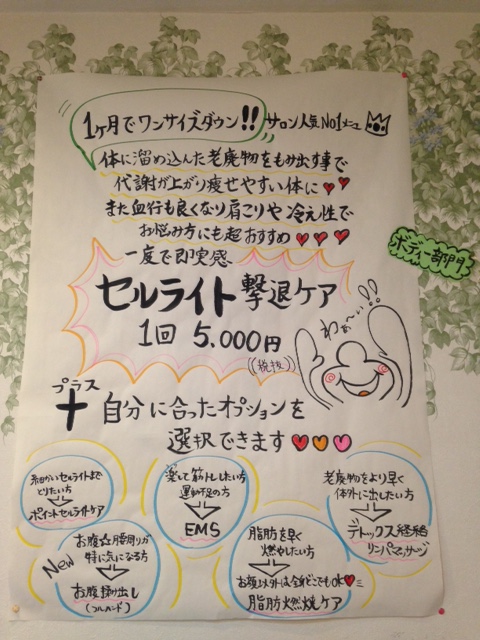 1ヶ月でワンサイズダウン!! サロン人気No1メニュー
体に溜め込んだ老廃物をもみ出す事で
代謝が上がり痩せやすい体に
また血行も良くなり肩こりや冷え性で
お悩み方にも超おすすめ
ボディー部門
一度で即実感
セルライト撃退ケア
1回 5,000円
(税抜)
わぁ〜い!!
プラス
+ 自分に合ったオプションを
選択できます
細かいセルライトまで
とりたい方
ポイントセルライトケア
楽して筋トレしたい方
運動不足の方
EMS
老廃物をより早く
体外に出したい方
デトックス経絡
リンパマッサージ
New
お腹&腰周りが
特に気になる方
お腹揉み出し
(フルハンド)
脂肪を早く
燃やしたい方
お腹以外は全身どこでもOK
脂肪燃焼ケア